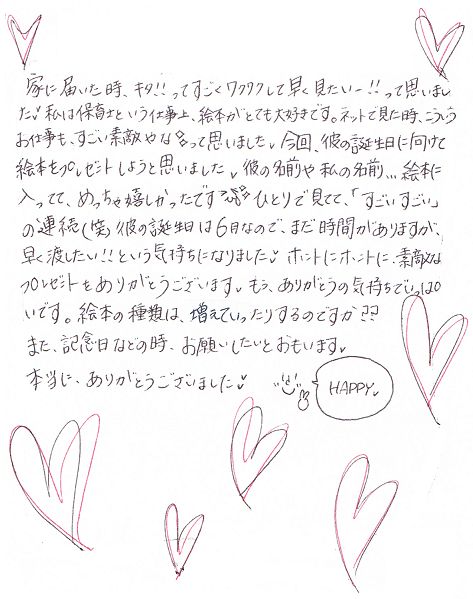 家に届いた時、キタ!!ってすごくワクワクして早く見たいー!!って思いまし
た♥私は保育士という仕事上、絵本がとても大好きです。ネットで見た時、こういう
お仕事も、すごい素敵やなあって思いました♥今回、彼の誕生日に向けて
絵本をプレゼントしようと思いました♥彼の名前や私の名前…絵本に
入ってて、めっちゃ嬉しかったです ひとりで見てて、「すごいすごい」
の連続(笑)彼の誕生日は6月なので、まだ時間がありますが、
早く渡したい!!という気持ちになりました♥ホントにホントに、素敵な
プレゼントをありがとうございます♥もぅ、ありがとうの気持ちでいっぱ
いです。絵本の種類は、増えていったりするのですか??
また、記念日などの時、お願いしたいとおもいます♥
本当に、ありがとうございました♥
HAPPY♥